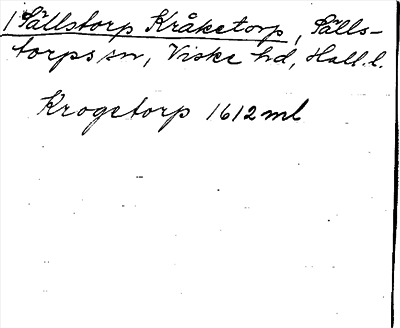 1 Sällstorp Kråketorp, Sälls-
torps sn, Viske hd, Hall. l.
Krogetorp 1612 ml